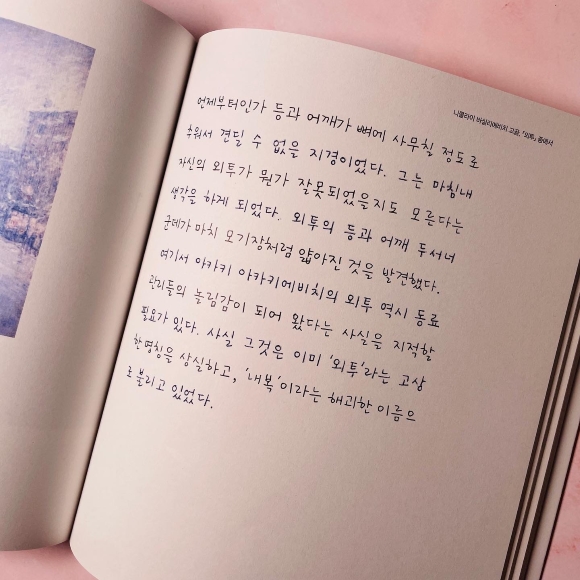 니콜라이 바실리예비치 고골, 「외투」 중에서
언제부터인가 등과 어깨가 뼈에 사무칠 정도로
추워서 견딜 수 없을 지경이었다. 그는 마침내
자신의 외투가 뭔가 잘못되었을지도 모른다는
생각을 하게 되었다. 외투의 등과 어깨 두서너
군데가 마치 모기장처럼 얇아진 것을 발견했다.
여기서 아카키 아카키예비치의 외투 역시 동료
관리들의 놀림감이 되어 왔다는 사실을 지적할
필요가 있다. 사실 그것은 이미 '외투'라는 고상
한 명칭을 상실하고, '내복'이라는 해괴한 이름으
로 불리고 있었다.